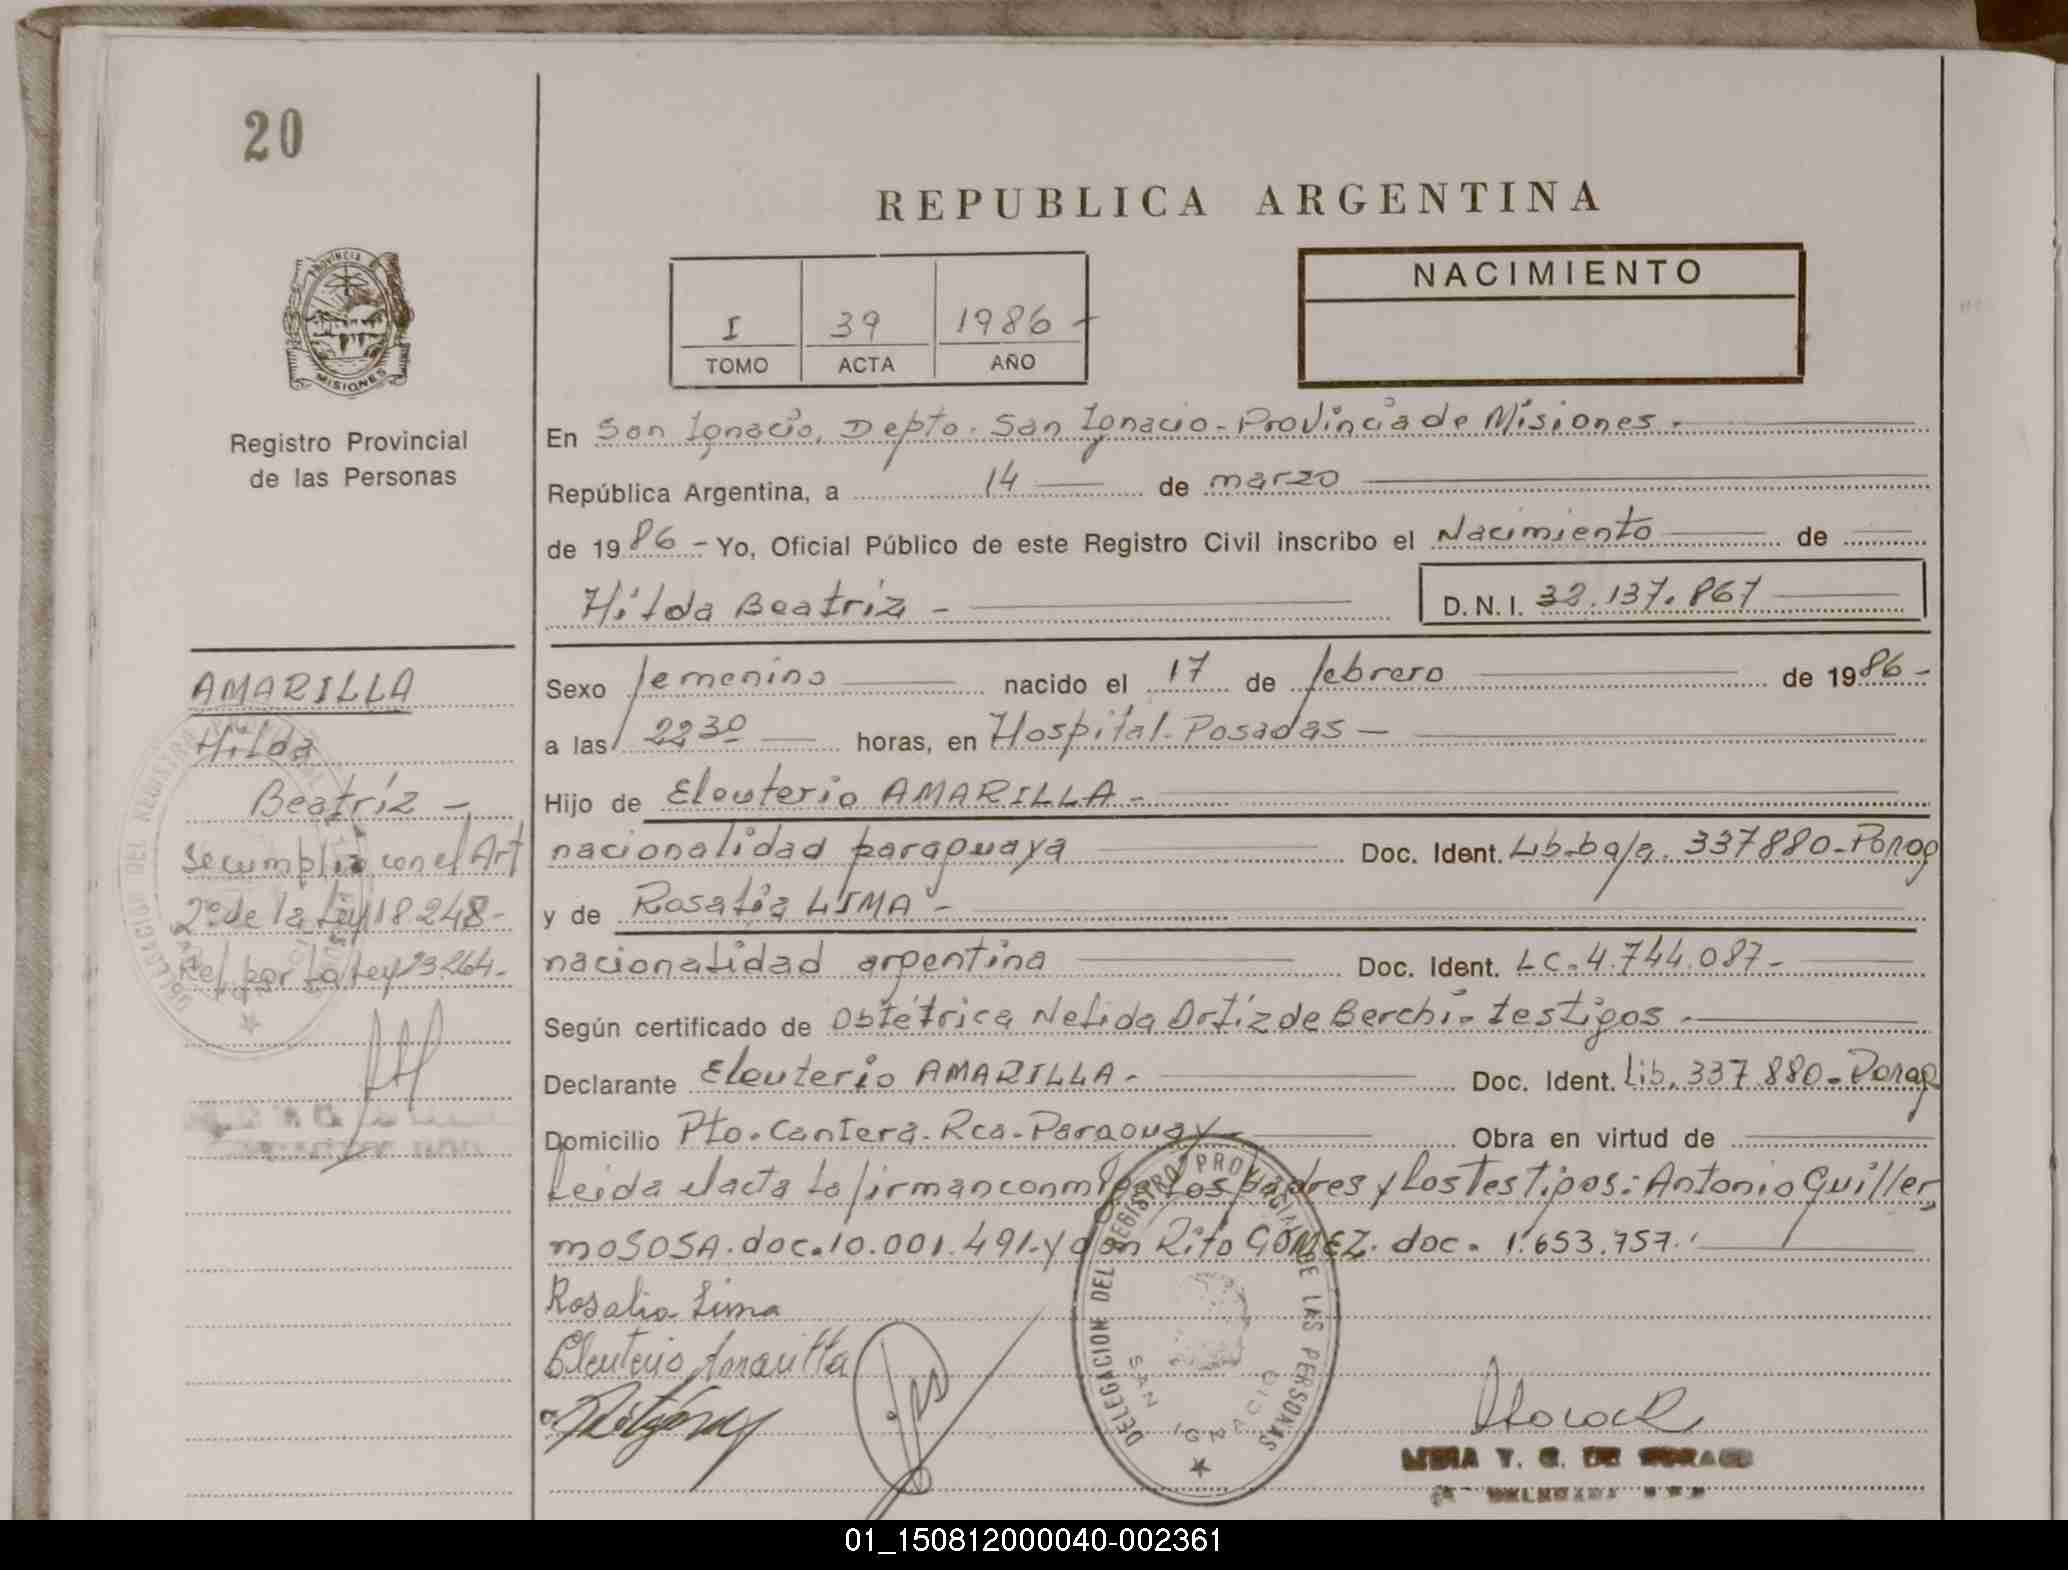 20
REPUBLICA ARGENTINA
PROVINCIA DE
MISIONES
Registro Provincial
de las Personas
I 39 1986
TOMO ACTA AÑO
NACIMIENTO
En San Ignacio, Depto. San Ignacio - Provincia de Misiones.
República Argentina, a 14 de marzo
de 1986 - Yo, Oficial Público de este Registro Civil inscribo el Nacimiento de
Hilda Beatriz - D.N.I. 32.137.867
AMARILLA
Hilda
Beatríz -
se cumplió con el Art
2º de la Ley 18248-
Ref. por la Ley 23264-
Sexo femenino nacido el 17 de febrero de 1986-
a las 22 30 horas, en Hospital-Posadas -
Hijo de Eleuterio AMARILLA -
nacionalidad paraguaya Doc. Ident. Lib.baja. 337880-Parag
y de Rosalia LIMA -
nacionalidad argentina Doc. Ident. LC.4.744.087-
Según certificado de Obstétrica Nelida Ortíz de Berchi- testigos -
Declarante Eleuterio AMARILLA - Doc. Ident. Lib. 337.880-Parag
Domicilio Pto. Cantera. Rca. Paraguay - Obra en virtud de
Leida el acta la firman conmigo los padres y los testigos: Antonio Guiller
mo SOSA. doc. 10.001.491- y don Rito GOMEZ. doc. 1.653.757.
Rosalia Lima
Eleuterio Amarilla
DELEGACION DEL REGISTRO PROVINCIAL DE LAS PERSONAS
SAN IGNACIO
01_150812000040-002361